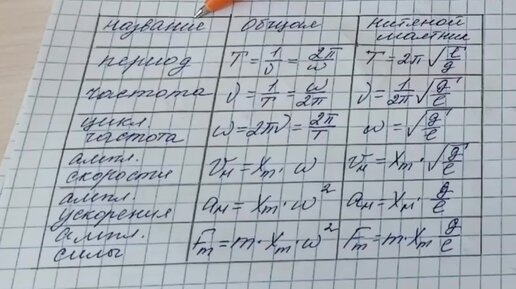 название общая нитяной маятник
период T = 1/ν = 2π/ω T = 2π√(ℓ/g)
частота ν = 1/T = ω/2π ν = 1/2π √(g/ℓ)
цикл. частота ω = 2πν = 2π/T ω = √(g/ℓ)
ампл. скорости vм = Xm · ω vм = Xm · √(g/ℓ)
ампл. ускорения aм = Xm · ω² aм = Xм · g/ℓ
ампл. силы Fm = m · Xm · ω² Fm = m · Xm g/ℓ